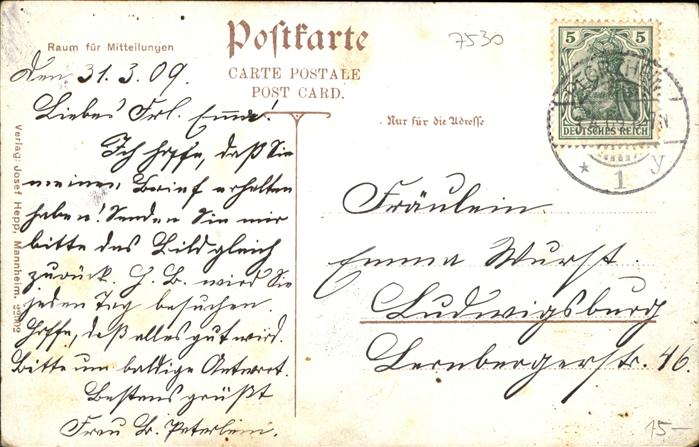 Raum für Mitteilungen
Postkarte
CARTE POSTALE
POST CARD.
Nur für die Adresse
7530
5 5
DEUTSCHES REICH
* 1 y
Den 31.3.09.
Liebes Frl. Emma!
Ich hoffe, daß Sie
meinen Brief erhalten
haben! Senden Sie mir
bitte das Bild gleich
zurück. H. B. wird Sie
jeden Tag besuchen.
Hoffe, daß alles gut wird.
Bitte um baldige Antwort.
Bestens grüßt
Frau
Fräulein
Emma Wurst.
Ludwigsburg
Lernbergerstr. 46.
Verlag: Josef Hepp, Mannheim.
15—